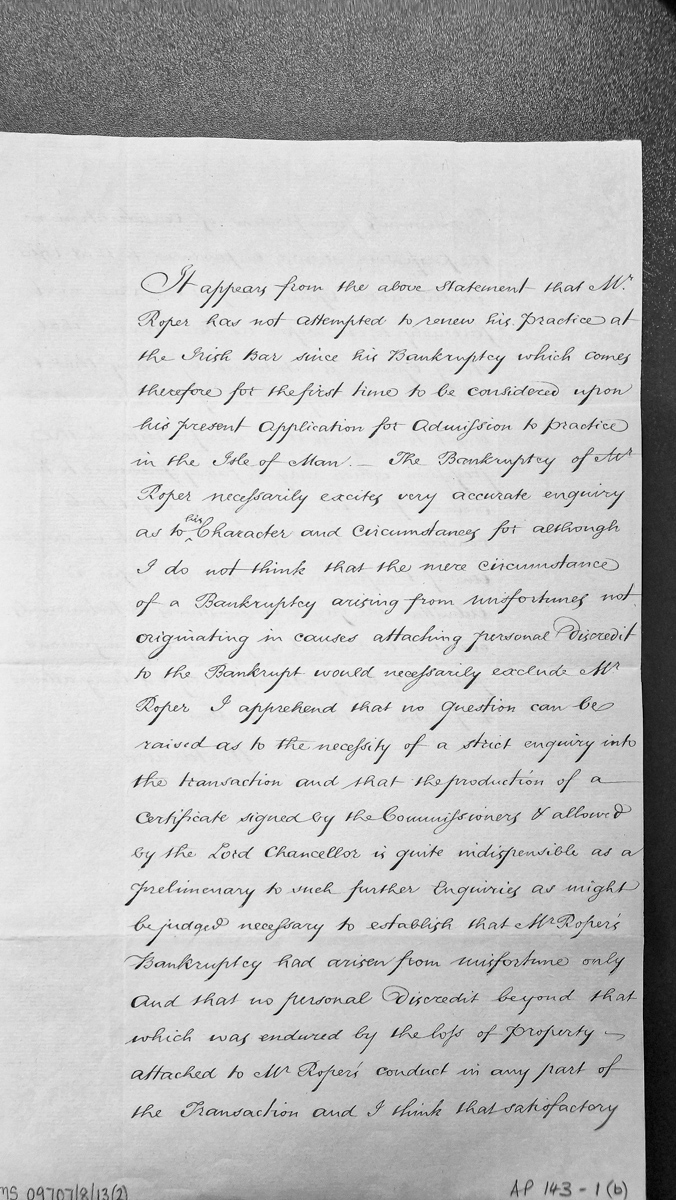 It appears from the above statement that Mr.
Roper has not attempted to renew his practice at
the Irish Bar since his Bankruptcy which comes
therefore for the first time to be considered upon
his present Application for Admission to practice
in the Isle of Man. — The Bankruptcy of Mr
Roper necessarily excites very accurate enquiry
as to ^his Character and Circumstances for although
I do not think that the mere circumstance
of a Bankruptcy arising from misfortunes not
originating in causes attaching personal Discredit
to the Bankrupt would necessarily exclude Mr
Roper I apprehend that no Question can be
raised as to the necessity of a strict enquiry into
the transaction and that the production of a
Certificate signed by the Commissioners & allowed
by the Lord Chancellor is quite indispensible as a
prelimenary to such further Enquiries as might
be judged necessary to establish that Mr Roper's
Bankruptcy had arisen from misfortune only
And that no personal Discredit beyond that
which was endured by the loss of Property –
attached to Mr Roper's conduct in any part of
the Transaction and I think that satisfactory
MS 09707/8/13(2)
AP 143-1(b)